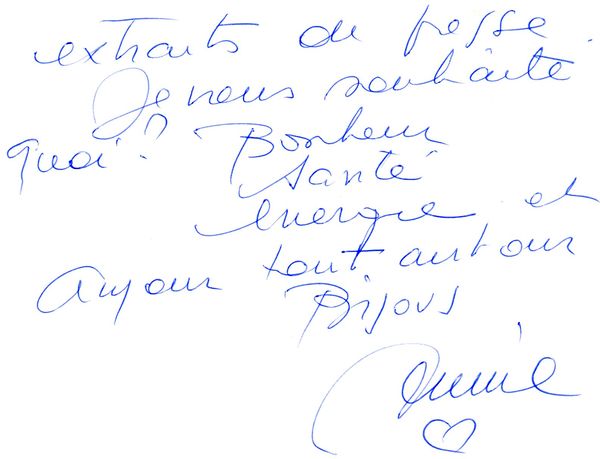 extraits de presse.
Je vous souhaite
quoi? Bonheur
santé
énergie et
Amour tout autour
Bisous
Annie